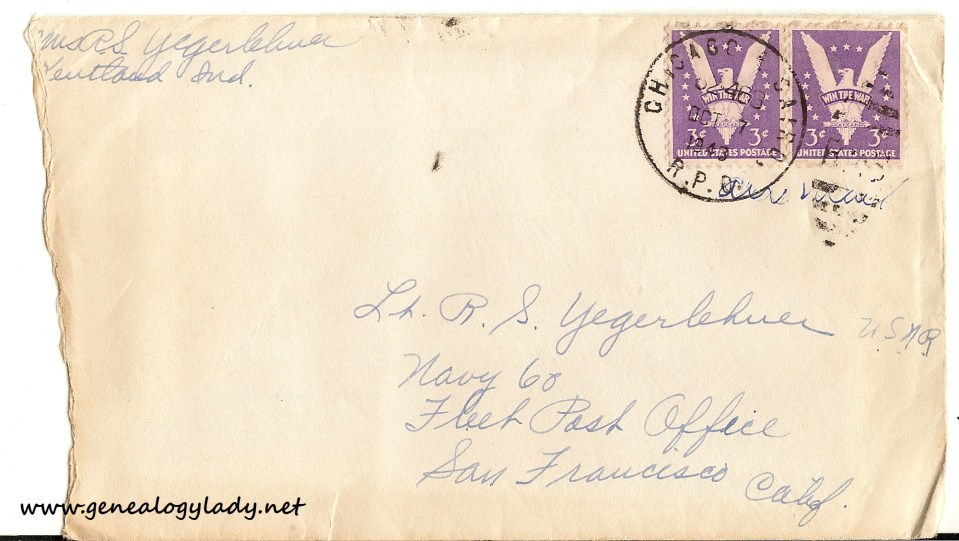 Mrs R S Yegerlehner
Kentland Ind.
CHICAGO
OCT 7
R.P.O.
WIN THE WAR
3¢ 3¢
UNITED STATES POSTAGE
WIN THE WAR
3¢ 3¢
UNITED STATES POSTAGE
air mail
Lt. R. S. Yegerlehner USNR
Navy 60
Fleet Post Office
San Francisco
Calif.
www.genealogylady.net